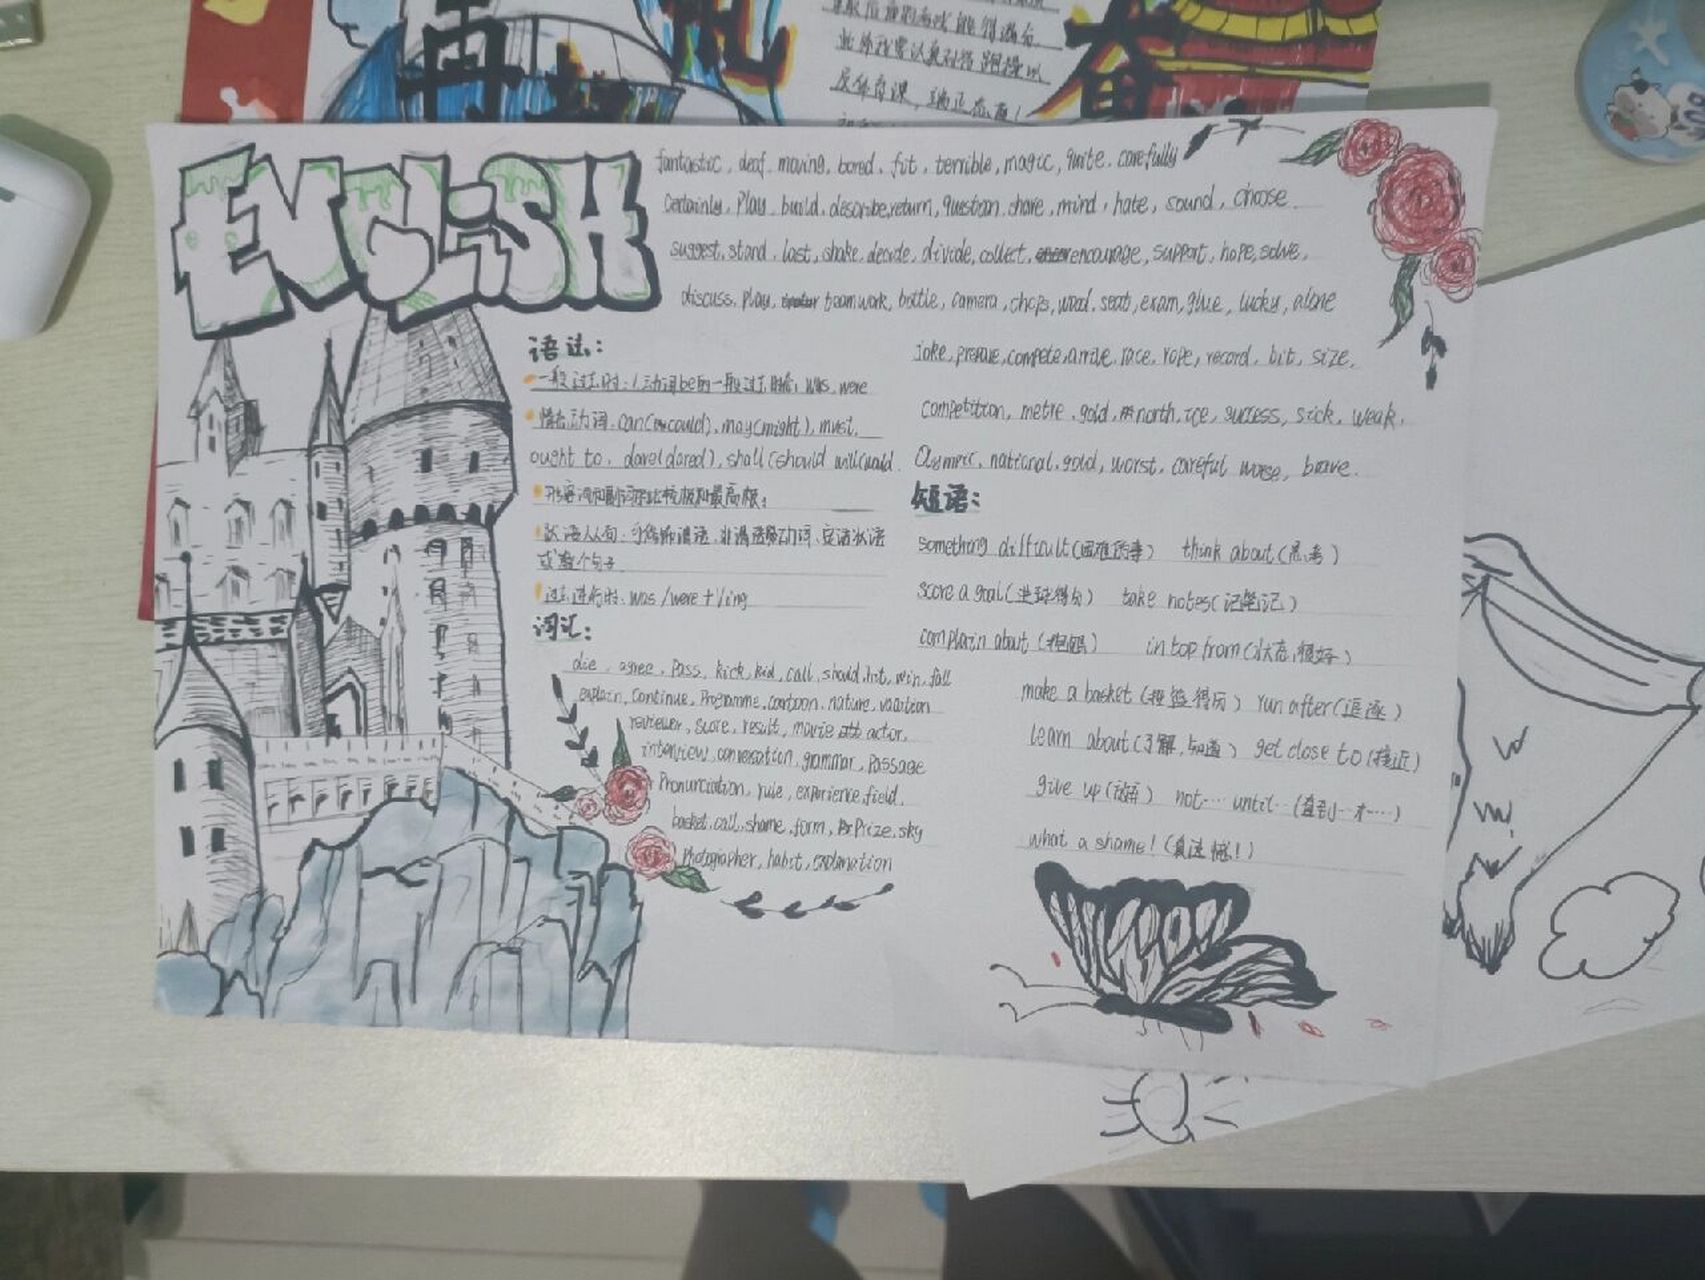 再
奋
些外我要认真对待跑操以
反体育课，端正态度！
ENGLiSH
fantastic, deaf, moving, bored, fit, terrible, magic, quite, carefully
Certainly, Play, build, describe, return, question, share, mind, hate, sound, choose
suggest, stand, last, shake, decide, divide, collect, encourage, support, hope, solve,
discuss, play, teamwork, bottle, camera, chips, wood, seat, exam, glue, lucky, alone
joke, prepare, compete, arrive, race, rope, record, bit, size,
competition, metre, gold, north, ice, success, sick, weak,
Olympic, national, gold, worst, careful worse, brave.
语法：
一般过去时：1动词be的一般过去时态：was, were
情态动词，can(could), may(might), must,
ought to, dare(dared), shall(should will(would
形容词和副词的比较级和最高级：
状语从句：可修饰谓语、非谓语动词、定语状语
或整个句子
过去进行时：was/were+V ing
词汇：
die, agree, Pass, kick, kid, call, should, hit, win, fall
explain, continue, Programme, cartoon, nature, vacation
reviewer, score, result, movie actor,
interview, conversation, grammar, Passage
Pronunciation, rule, experience, field,
basket, call, shame, form, Prize, sky
Photographer, habit, explanation
短语：
something difficult(困难的事) think about(思考)
score a goal(进球得分) take notes(记笔记)
complain about(抱怨) in top from(状态很好)
make a basket(投篮得分) run after(追逐)
learn about(了解，知道) get close to(接近)
give up(放弃) not…until…(直到…才……)
what a shame!(真遗憾！)